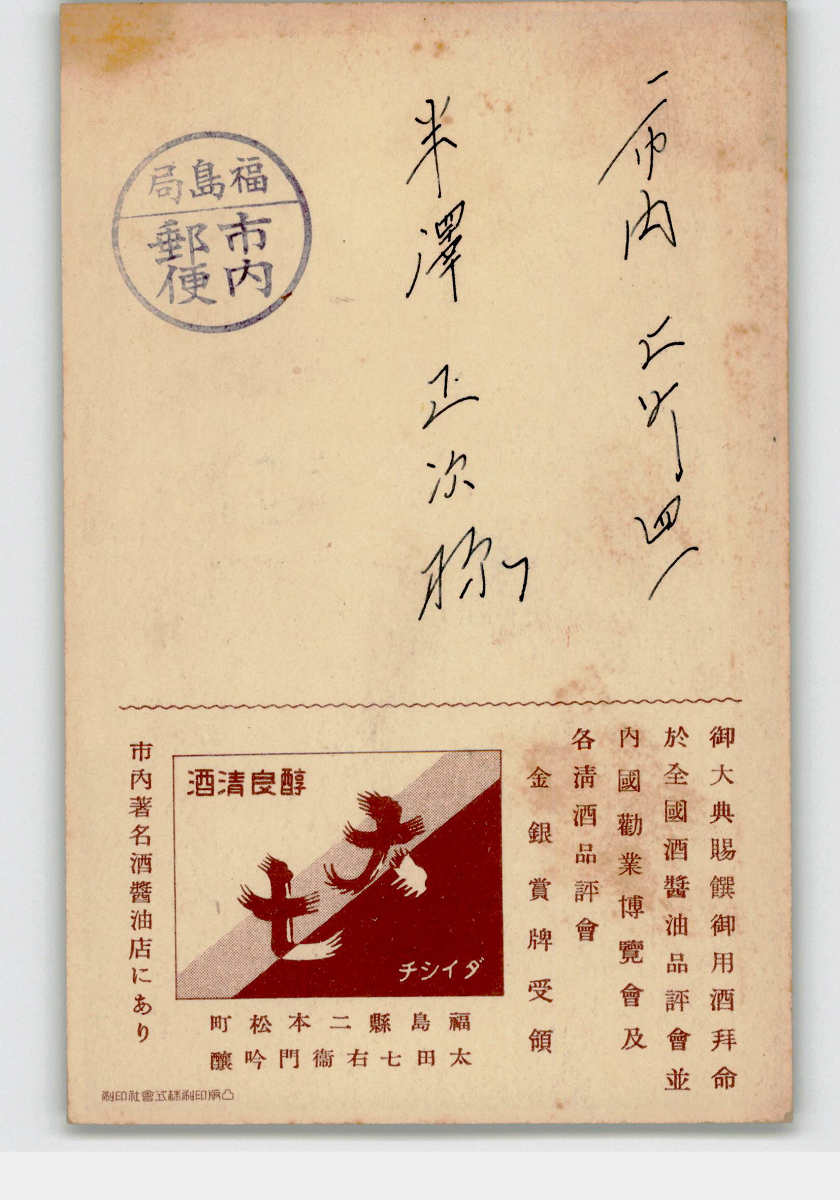 市内 上町四一
半澤 正次 様
福島局
市内
郵便
御大典賜饌御用酒拜命
於全國酒醬油品評會並
內國勸業博覽會及
各淸酒品評會
金銀賞牌受領
醇良清酒
大七
ダイシチ
福島縣二本松町
太田七右衞門吟釀
市內著名酒醬油店にあり
凸版印刷株式會社印刷